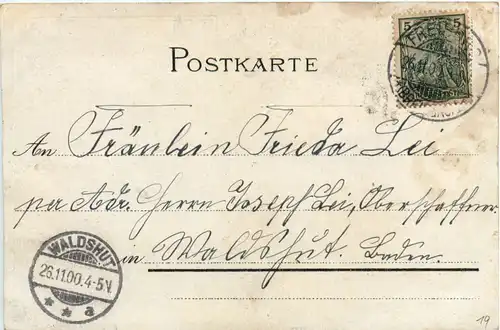 POSTKARTE
5 5
26.11.00
An Fräulein Frieda Lei
per Adr. Herrn Joseph Lei, Oberschaffner
in Waldshut. Baden.
WALDSHUT
26.11.00.4-5N
* * a
19